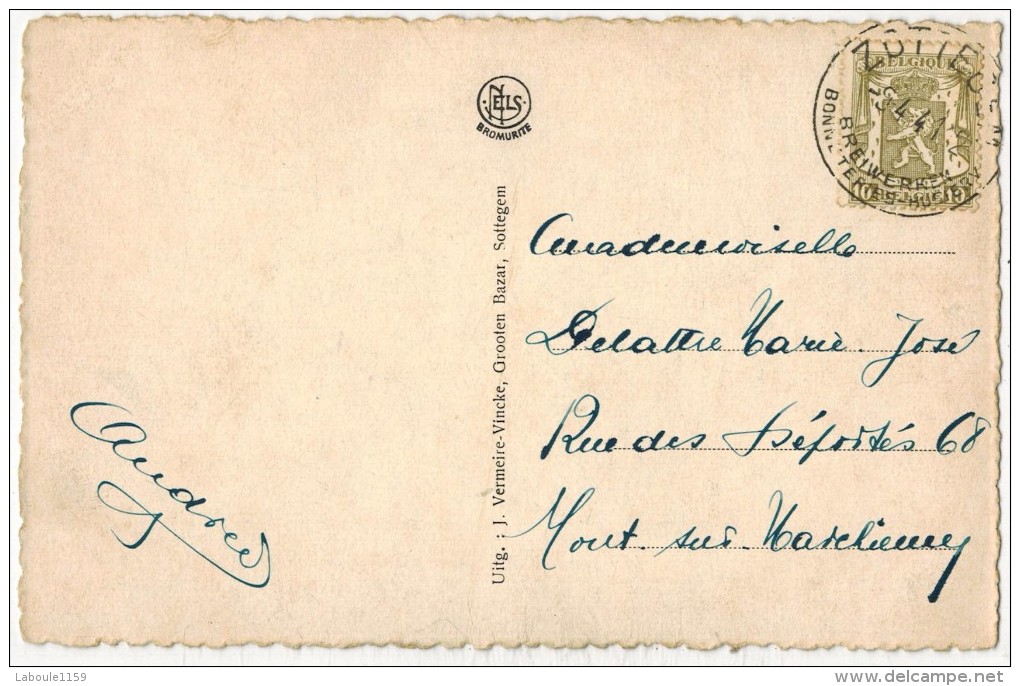 NELS
BROMURITE
BELGIQUE
10
BREIWERKEN
Uitg. : J. Vermeire-Vincke, Grooten Bazar, Sottegem
Mademoiselle
Delattre Marie-José
Rue des Déportés 68
Mont-sur-Marchienne
Andrée
Laboule1159
delcampe.net